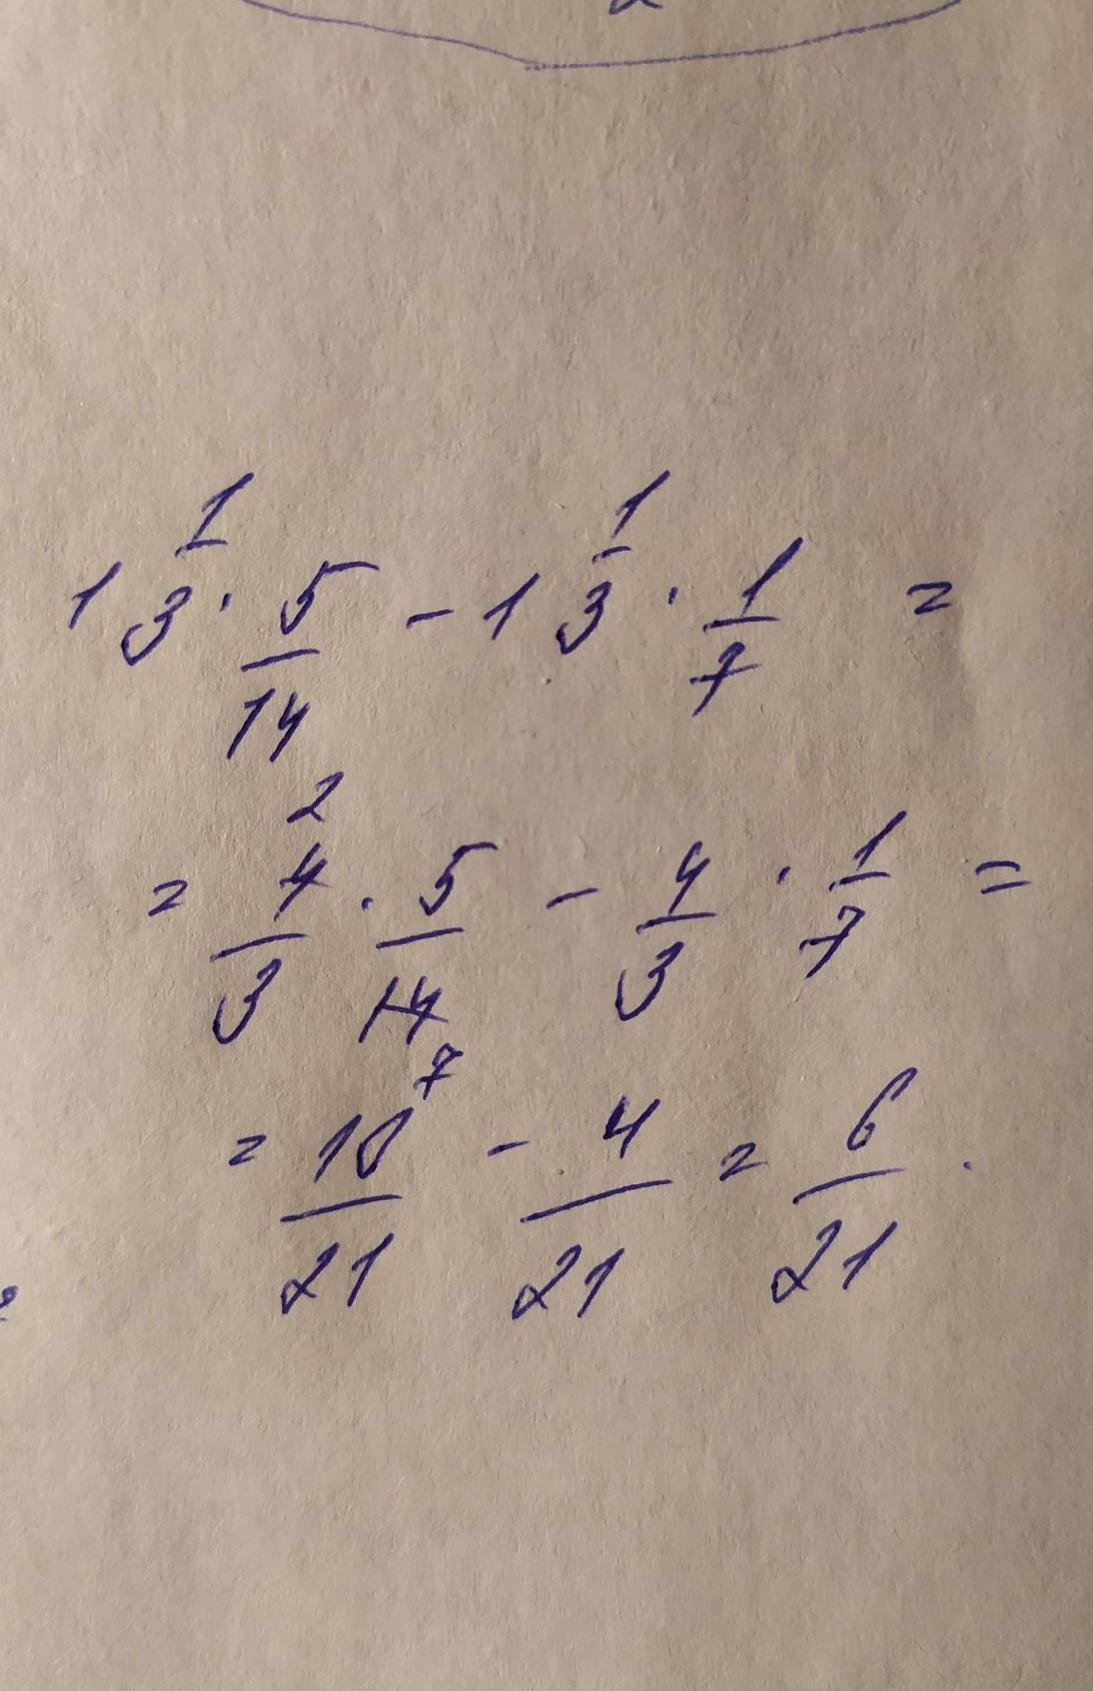 1 1/3 · 5/14 - 1 1/3 · 1/7 =
2
= 4/3 · 5/14 - 4/3 · 1/7 =
7
= 10/21 - 4/21 = 6/21 .